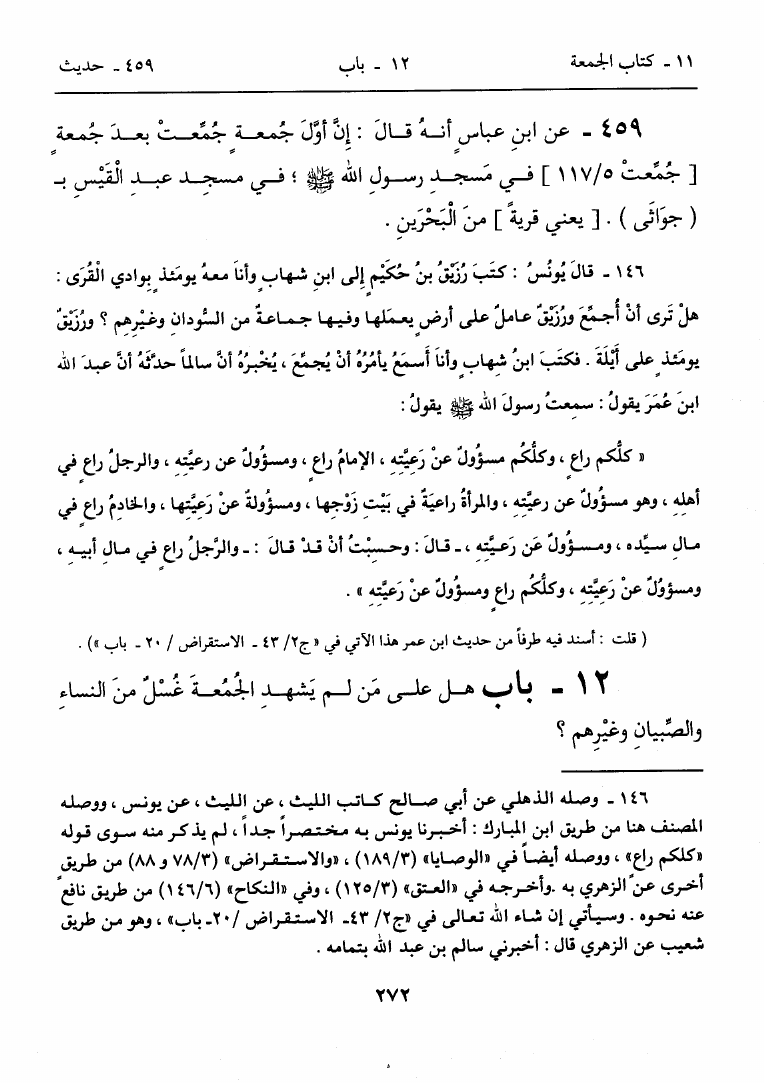 ١١ - كتاب الجمعة ١٢ - باب ٤٥٩ - حديث
٤٥٩ - عن ابنِ عباسٍ أنهُ قالَ : إنَّ أوَّلَ جُمعةٍ جُمِّعتْ بعدَ جُمعةٍ
[ جُمِّعتْ ١١٧/٥ ] في مَسجدِ رسولِ الله ﷺ ؛ في مسجدِ عبدِ الْقَيْسِ بـ
( جوَاثَى ) . [ يعني قريةً ] منَ الْبَحْرَينِ .
١٤٦ - قالَ يُونُسُ : كتَبَ رُزَيْقُ بنُ حُكَيْمٍ إلى ابنِ شهابٍ وأناَ معهُ يومَئذٍ بِوادي الْقُرَى :
هلْ تَرى أنْ أُجمِّعَ ورُزَيْقٌ عاملٌ على أرضٍ يعملُها وفيها جماعةٌ من السُّودانِ وغيْرِهم ؟ ورُزَيْقٌ
يومَئذٍ على أَيْلَةَ . فكتَبَ ابنُ شهابٍ وأناَ أَسمَعُ يأمُرُهُ أنْ يُجمِّعَ ، يُخْبِرُهُ أنَّ سالماً حدَّثَهُ أنَّ عبدَ الله
ابنَ عُمَرَ يقولُ : سمعتُ رسولَ الله ﷺ يقولُ :
« كلُّكم راعٍ ، وكلُّكُم مسؤولٌ عنْ رَعِيَّتِهِ ، الإمامُ راعٍ ، ومسؤولٌ عن رعيَّتِهِ ، والرجلُ راعٍ في
أهلهِ ، وهو مسؤولٌ عن رعيَّتِهِ ، والمرأةُ راعيَةٌ في بَيْتِ زَوْجِها ، ومسؤولةٌ عنْ رَعِيَّتِها ، والخادِمُ راعٍ في
مالِ سيِّدهِ ، ومسؤولٌ عَن رَعيَّتِهِ ، - قالَ : وحسِبْتُ أنْ قدْ قالَ : - والرَّجلُ راعٍ في مالِ أبيهِ ،
ومسؤولٌ عنْ رَعِيَّتِهِ ، وكلُّكُم راعٍ ومسؤولٌ عنْ رَعيَّتِهِ » .
( قلت : أسند فيه طرفاً من حديث ابن عمر هذا الآتي في « ج٢/ ٤٣ - الاستقراض / ٢٠ - باب ») .
١٢ - باب هل على مَن لم يَشهدِ الجُمُعةَ غُسْلٌ منَ النساءِ
والصِّبيانِ وغَيْرِهم ؟
١٤٦ - وصله الذهلي عن أبي صالح كاتب الليث ، عن الليث ، عن يونس ، ووصله
المصنف هنا من طريق ابن المبارك : أخبرنا يونس به مختصراً جداً ، لم يذكر منه سوى قوله
«كلكم راع» ، ووصله أيضاً في «الوصايا» (١٨٩/٣) ، «والاستقراض» (٧٨/٣ و ٨٨) من طريق
أخرى عن الزهري به . وأخرجه في «العتق» (١٢٥/٣) ، وفي «النكاح» (١٤٦/٦) من طريق نافع
عنه نحوه . وسيأتي إن شاء الله تعالى في «ج٢/ ٤٣- الاستقراض /٢٠- باب» ، وهو من طريق
شعيب عن الزهري قال : أخبرني سالم بن عبد الله بتمامه .
٢٧٢